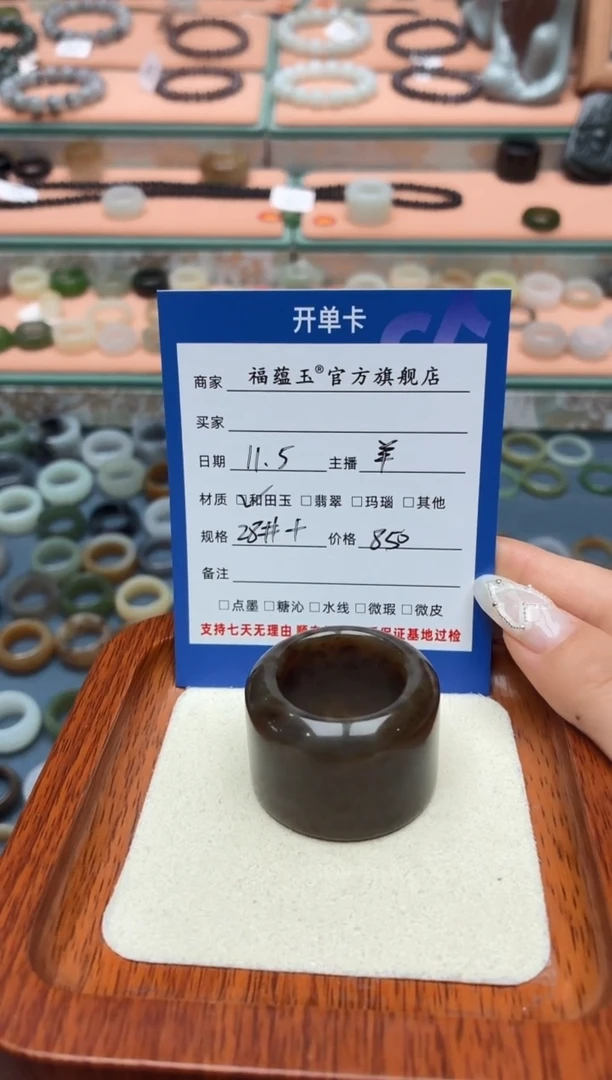 开单卡
商家 福蕴玉®官方旗舰店
买家
日期 11.5 主播 羊
材质 ☑和田玉 □翡翠 □玛瑙 □其他
规格 28#+ 价格 850
备注
□点墨 □糖沁 □水线 □微瑕 □微皮
支持七天无理由 顺 保证基地过检